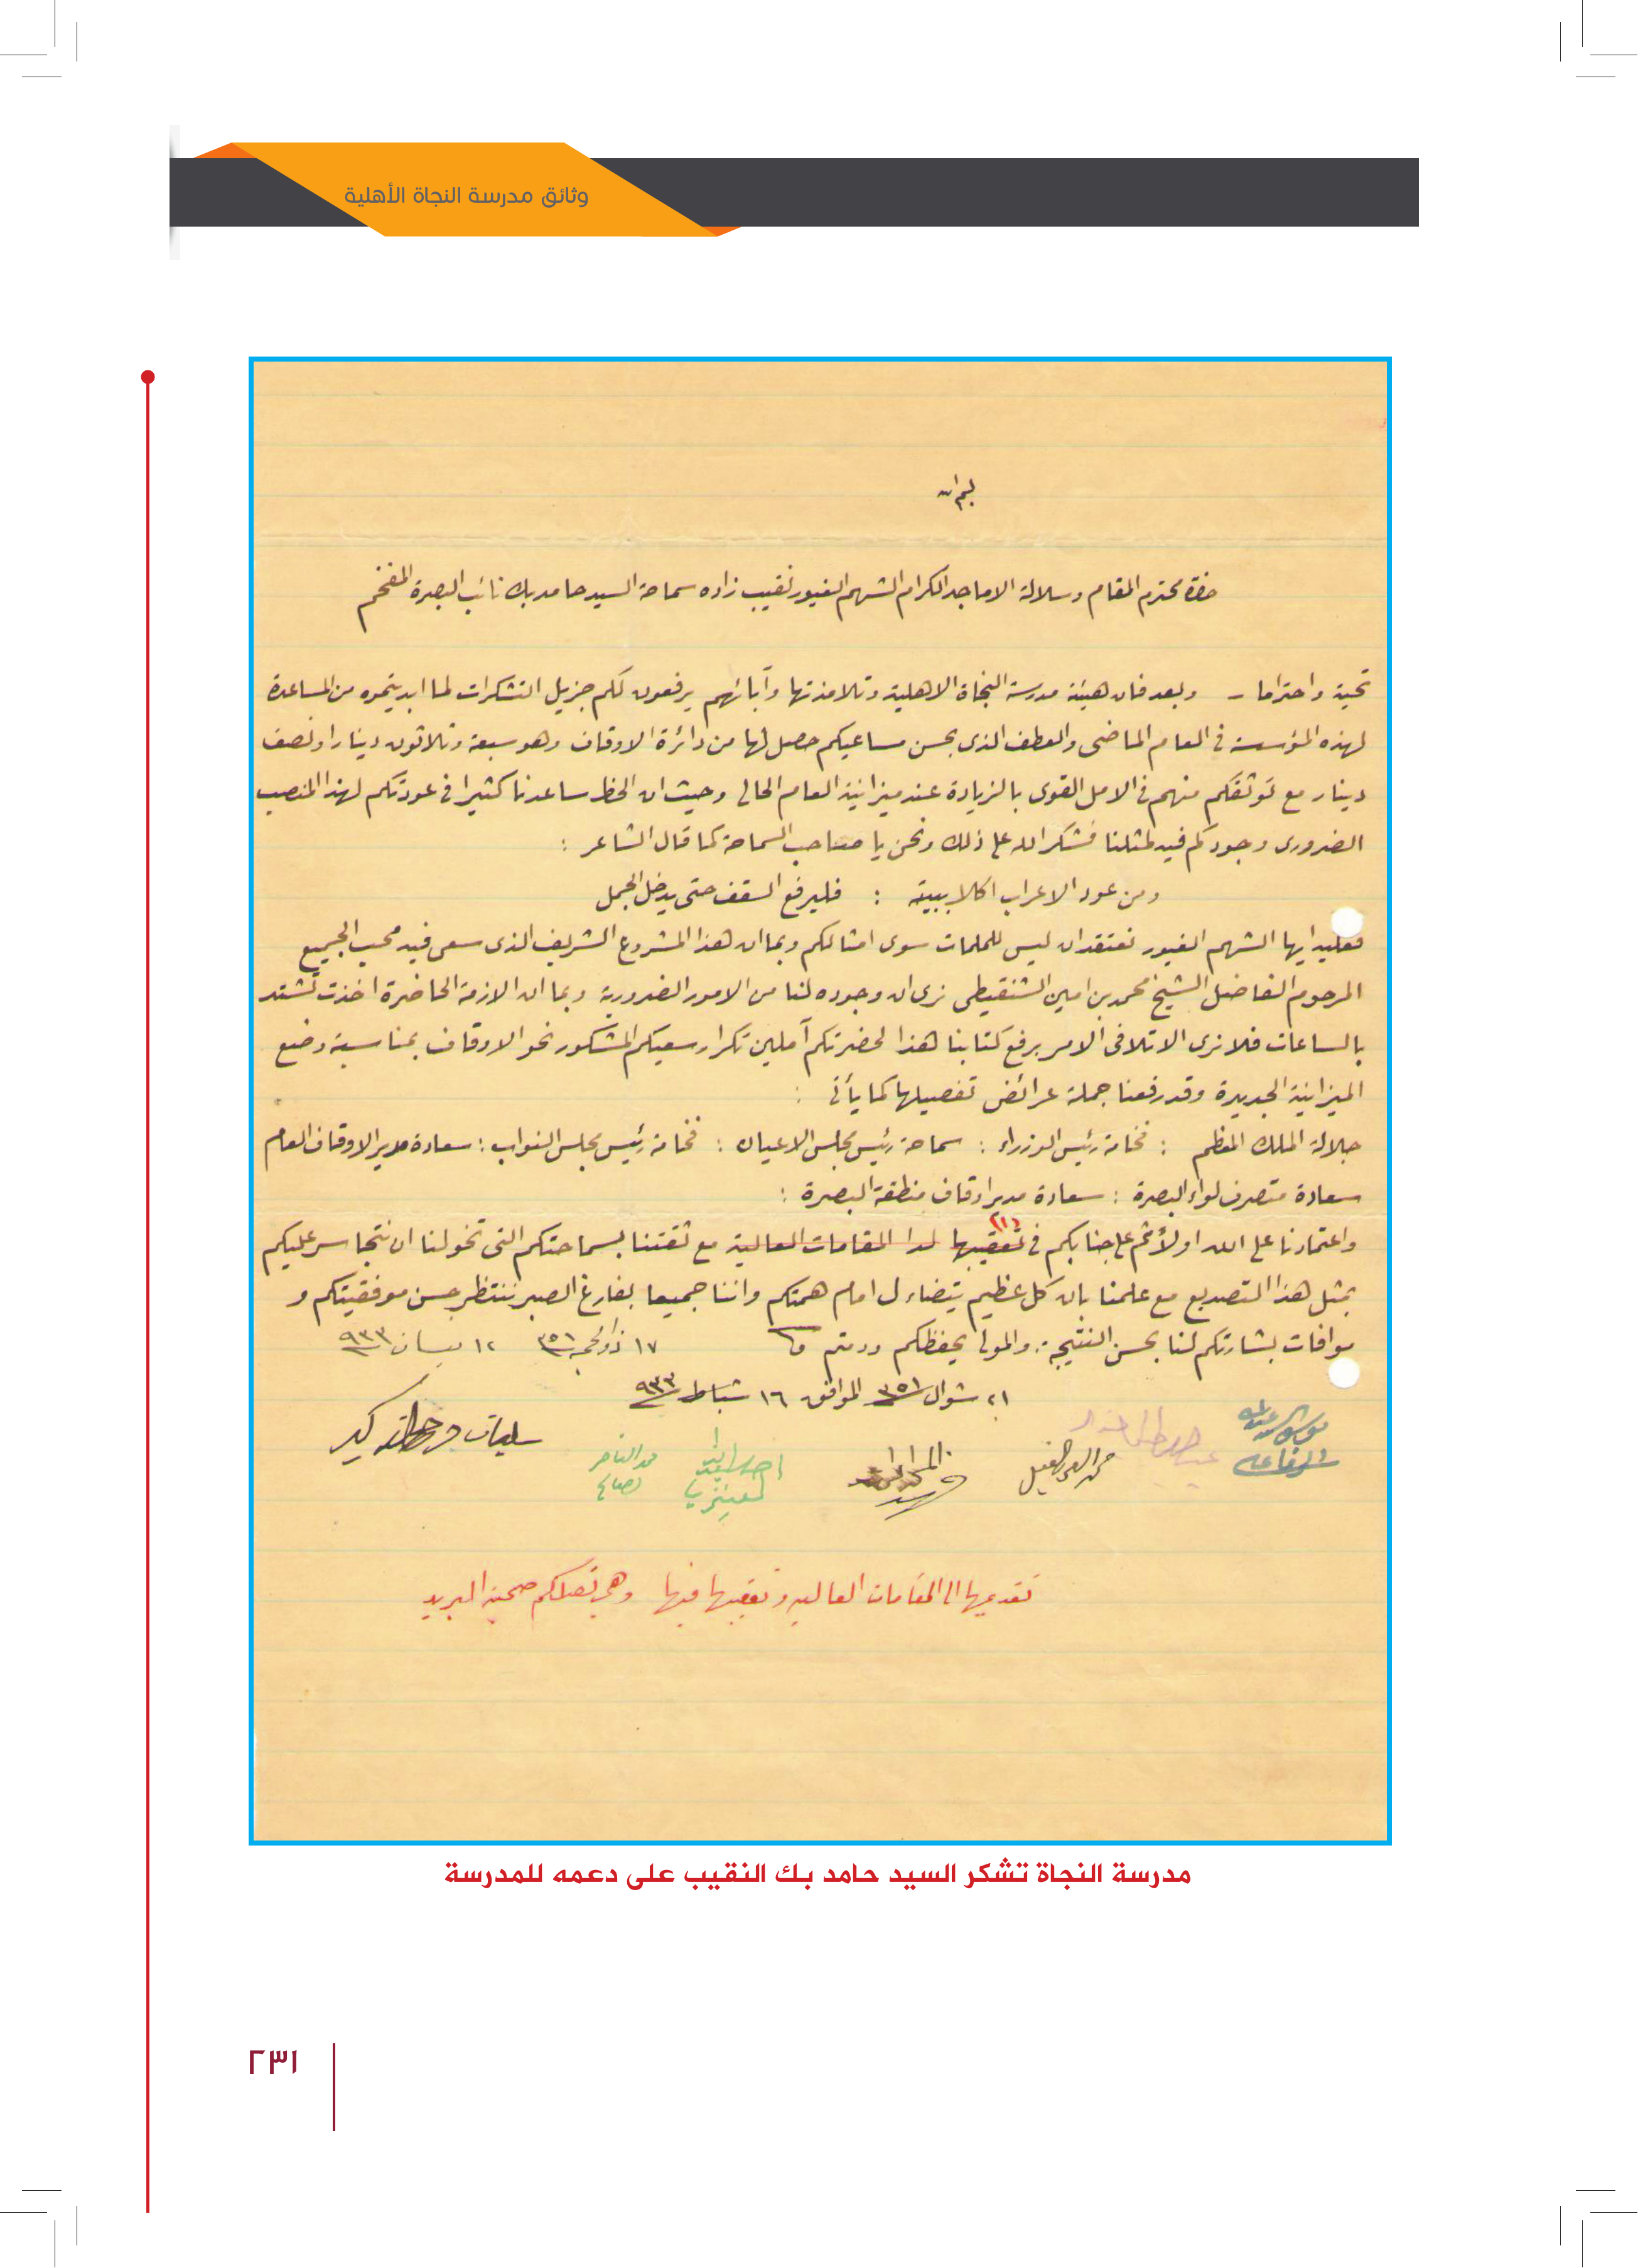 وثائق مدرسة النجاة الأهلية
بسم الله
حضرة محترم المقام وسلالة الاماجد الكرام الشهم الغيور نقيب زاده سماحة السيد حامد بك نائب البصرة المفخم
تحية واحتراما - وبعد فان هيئة مدرسة النجاة الاهلية وتلامذتها وآبائهم يرفعون لكم جزيل التشكرات لما ابديتموه من المساعدة
لهذه المؤسسة في العام الماضى والعطف الذى بحسن مساعيكم حصل لها من دائرة الاوقاف وهو سبعة وثلاثون دينارا ونصف
دينار مع توثقكم منهم في الامل القوى بالزيادة عند ميزانية العام الحالى وحيث ان الحظ ساعدنا كثيرا في عودتكم لهذا المنصب
الضرورى وجودكم فيه لمثلنا فنشكر الله على ذلك ونحن يا صاحب السماحة كما قال الشاعر :
ومن عود الاعراب اكلا ببيته : فليرفع السقف حتى يدخل الجمل
فعليه ايها الشهم الغيور نعتقد ان ليس للملمات سوى امثالكم وبما ان هذا المشروع الشريف الذى سعى فيه محب الجميع
المرحوم الفاضل الشيخ محمد بن امين الشنقيطى نرى ان وجوده لنا من الامور الضرورية وبما ان الازمة الحاضرة اخذت تشتد
بالساعات فلا نرى الا تلافى الامر برفع كتابنا هذا لحضرتكم آملين تكرار سعيكم المشكور نحو الاوقاف بمناسبة وضع
الميزانية الجديدة وقد رفعنا جملة عرائض تفصيلها كما يأتى :
جلالة الملك المعظم : فخامة رئيس الوزراء : سماحة رئيس مجلس الاعيان : فخامة رئيس مجلس النواب : سعادة مدير الاوقاف العام
سعادة متصرف لواء البصرة : سعادة مدير اوقاف منطقة البصرة :
واعتمادنا على الله اولاً ثم على جنابكم في (١) تعقيبها لدا المقامات العالية مع ثقتنا بسماحتكم التى تخولنا ان نتجاسر عليكم
بمثل هذا التصديع مع علمنا بان كل عظيم يتضاءل امام همتكم واننا جميعا بفارغ الصبر ننتظر حسن موفقيتكم و
موافات بشارتكم لنا بحسن النتيجة . والمولى يحفظكم ودمتم
١٧ ذو الحجة ٣٥١ ١٢ نيسان ٩٣٣
٢١ شوال ٣٥١ الموافق ١٦ شباط ٩٣٣
محمد العقيل
محمد الناصر
تقديمها الى المقامات العاليه وتعقيبها فيها وهى تصلكم صحبة البريد
مدرسة النجاة تشكر السيد حامد بك النقيب على دعمه للمدرسة
٢٣١